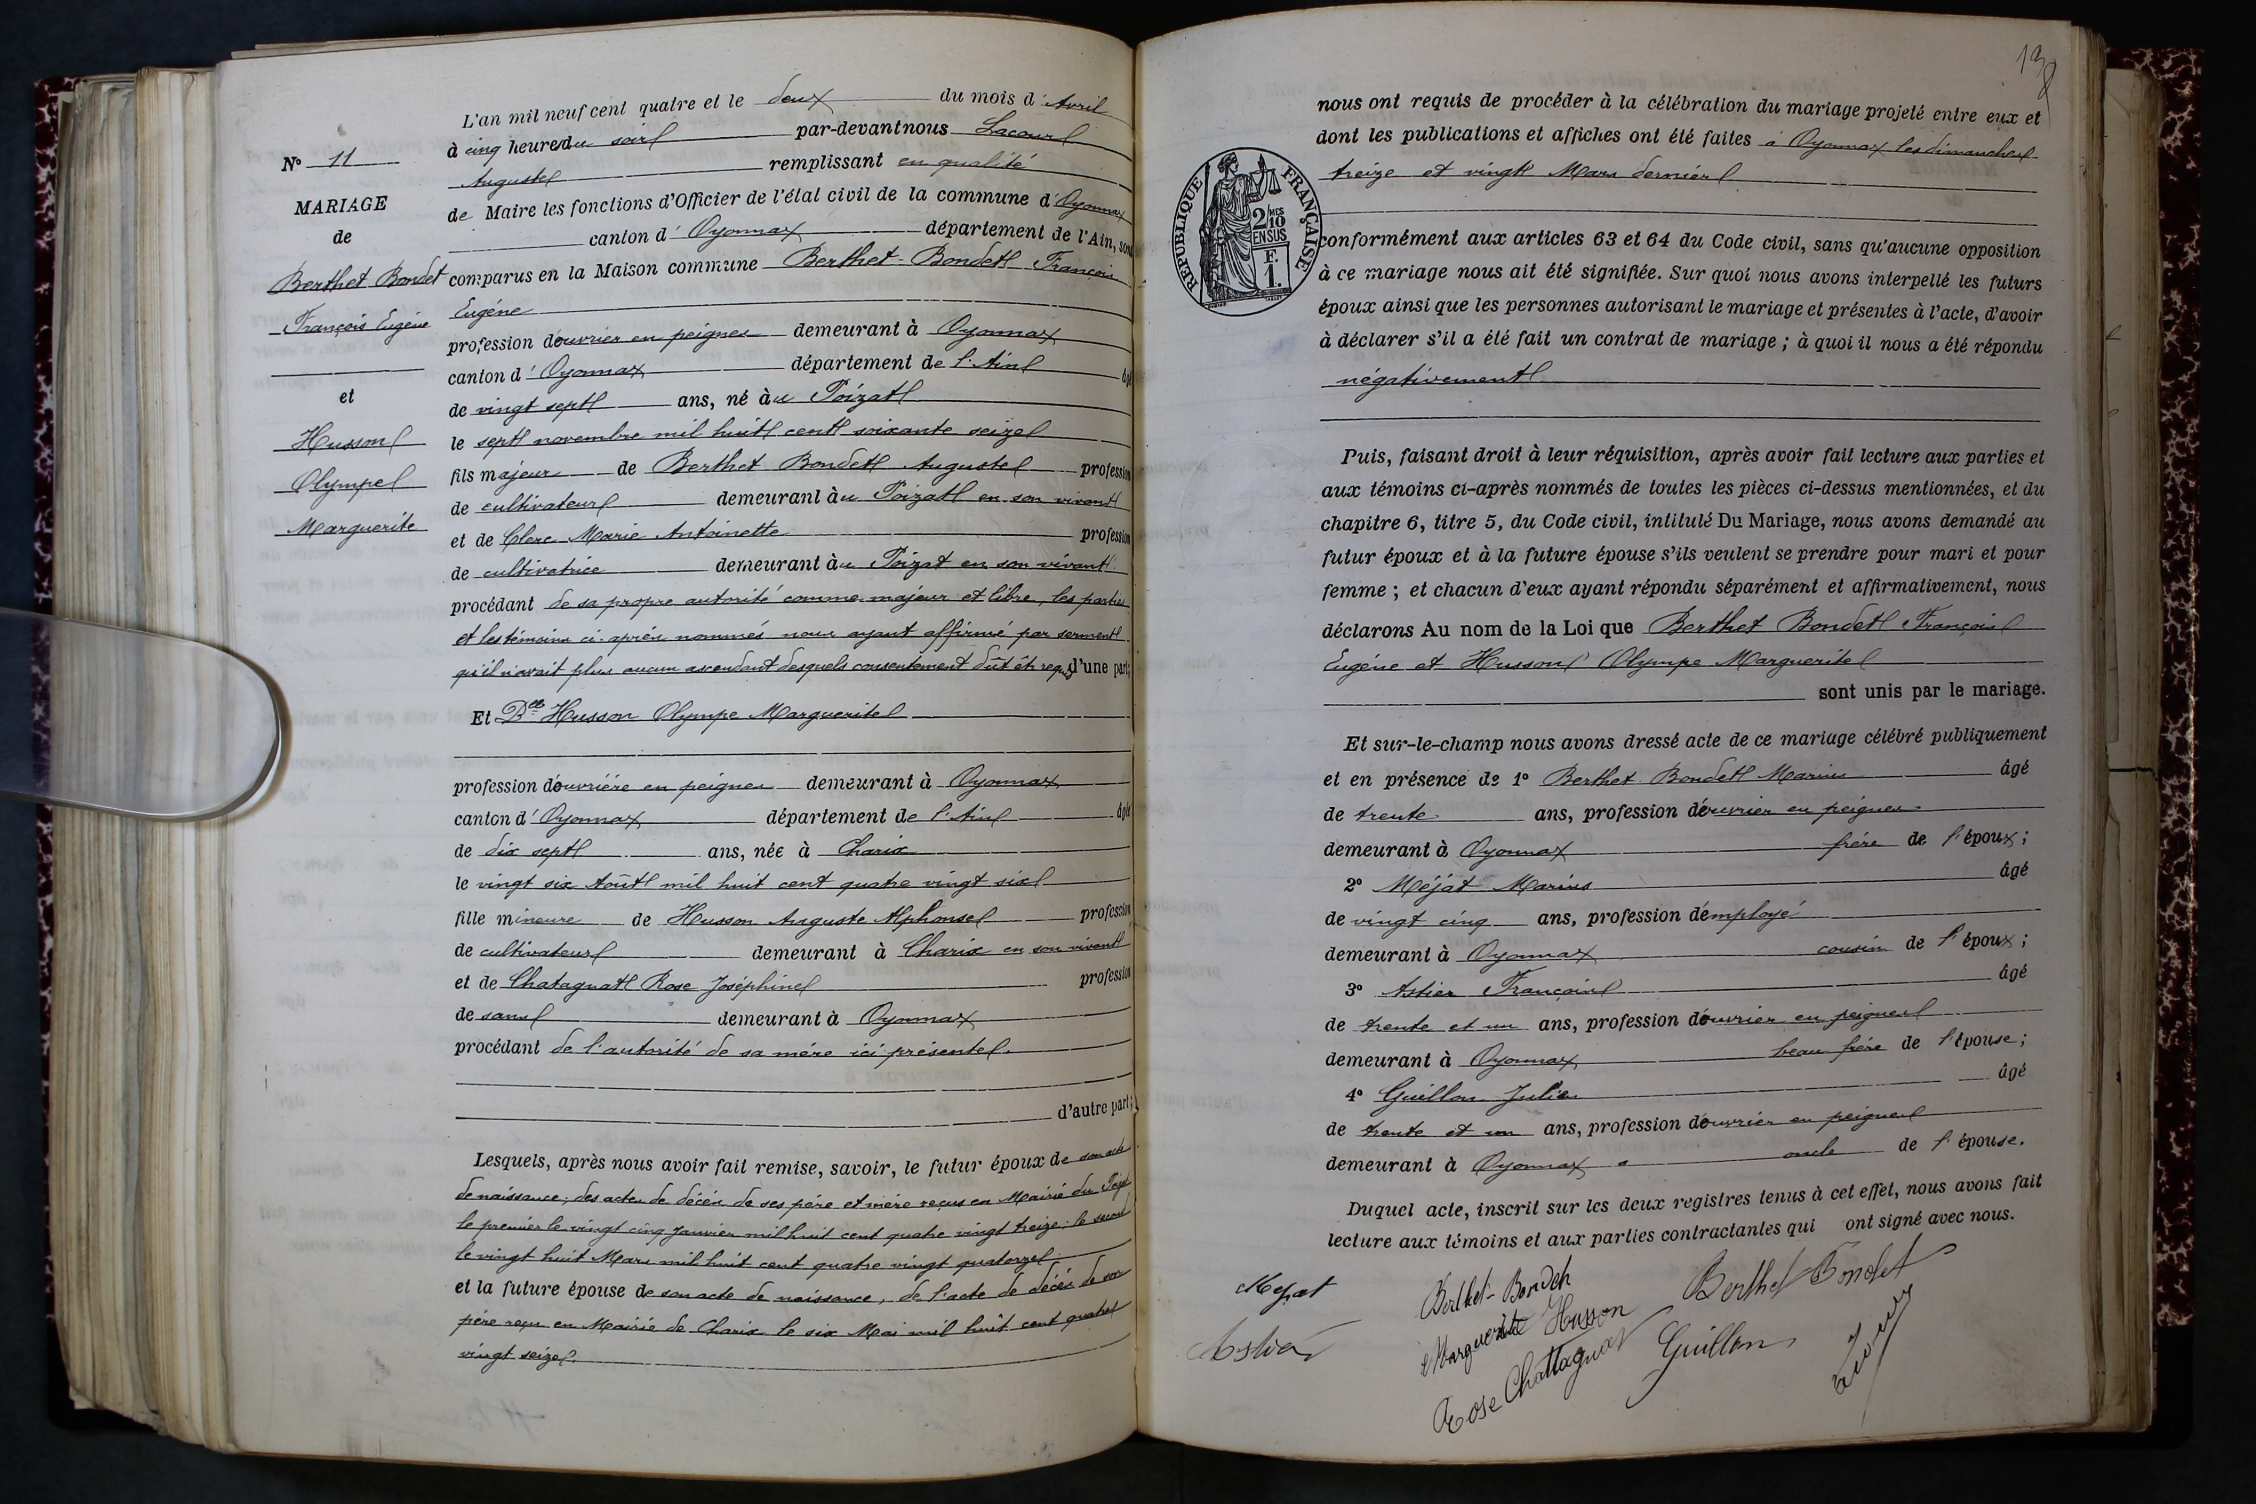 L'an mil neuf cent quatre et le deux du mois d'Avril
à cinq heures du soir par-devant nous Lacour
Auguste remplissant en qualité
de Maire les fonctions d'Officier de l'état civil de la commune d'Oyonnax
canton d'Oyonnax département de l'Ain, sont
comparus en la Maison commune Berthet-Bondet François
Eugène
profession d'ouvrier en peignes demeurant à Oyonnax
canton d'Oyonnax département de l'Ain âgé
de vingt sept ans, né au Poizat
le sept novembre mil huit cent soixante seize
fils majeur de Berthet Bondet Auguste profession
de cultivateur demeurant au Poizat en son vivant
et de Clerc Marie Antoinette profession
de cultivatrice demeurant au Poizat en son vivant
procédant de sa propre autorité comme majeur et libre, les parties
et les témoins ci-après nommés nous ayant affirmé par serment
qu'il n'avait plus aucun ascendant desquels consentement dût êt. requis d'une part;
Et Dlle Husson Olympe Marguerite
profession d'ouvrière en peignes demeurant à Oyonnax
canton d'Oyonnax département de l'Ain âgée
de dix sept ans, née à Charix
le vingt six Août mil huit cent quatre vingt six
fille mineure de Husson Auguste Alphonse profession
de cultivateur demeurant à Charix en son vivant
et de Chatagnat Rose Joséphine profession
de sans demeurant à Oyonnax
procédant de l'autorité de sa mère ici présente.
d'autre part;
Lesquels, après nous avoir fait remise, savoir, le futur époux de son acte
de naissance; des actes de décès de ses père et mère reçus en Mairie du Poizat
le premier le vingt cinq Janvier mil huit cent quatre vingt treize; le second
le vingt huit Mars mil huit cent quatre vingt quatorze;
et la future épouse de son acte de naissance, de l'acte de décès de son
père reçu en Mairie de Charix le six Mai mil huit cent quatre
vingt seize.
N° 11
MARIAGE
de
Berthet Bondet
François Eugène
et
Husson
Olympe
Marguerite
nous ont requis de procéder à la célébration du mariage projeté entre eux et
dont les publications et affiches ont été faites à Oyonnax les dimanches
treize et vingt Mars dernier
RÉPUBLIQUE FRANÇAISE
2/10 MES
EN SUS
F.
1.
conformément aux articles 63 et 64 du Code civil, sans qu'aucune opposition
à ce mariage nous ait été signifiée. Sur quoi nous avons interpellé les futurs
époux ainsi que les personnes autorisant le mariage et présentes à l'acte, d'avoir
à déclarer s'il a été fait un contrat de mariage; à quoi il nous a été répondu
négativement
Puis, faisant droit à leur réquisition, après avoir fait lecture aux parties et
aux témoins ci-après nommés de toutes les pièces ci-dessus mentionnées, et du
chapitre 6, titre 5, du Code civil, intitulé Du Mariage, nous avons demandé au
futur époux et à la future épouse s'ils veulent se prendre pour mari et pour
femme; et chacun d'eux ayant répondu séparément et affirmativement, nous
déclarons Au nom de la Loi que Berthet Bondet François
Eugène et Husson Olympe Marguerite
sont unis par le mariage.
Et sur-le-champ nous avons dressé acte de ce mariage célébré publiquement
et en présence de 1° Berthet Bondet Marius âgé
de trente ans, profession d'ouvrier en peignes
demeurant à Oyonnax frère de l'époux;
2° Méjat Marius âgé
de vingt cinq ans, profession d'employé
demeurant à Oyonnax cousin de l'époux;
3° Astier François âgé
de trente et un ans, profession d'ouvrier en peignes
demeurant à Oyonnax beau frère de l'épouse;
4° Guillon Julien âgé
de trente et un ans, profession d'ouvrier en peignes
demeurant à Oyonnax oncle de l'épouse.
Duquel acte, inscrit sur les deux registres tenus à cet effet, nous avons fait
lecture aux témoins et aux parties contractantes qui ont signé avec nous.
Mejat
Berthet-Bondet
Berthet Bondet
Astier
Marguerite Husson
Guillon
Rose Chattagnat